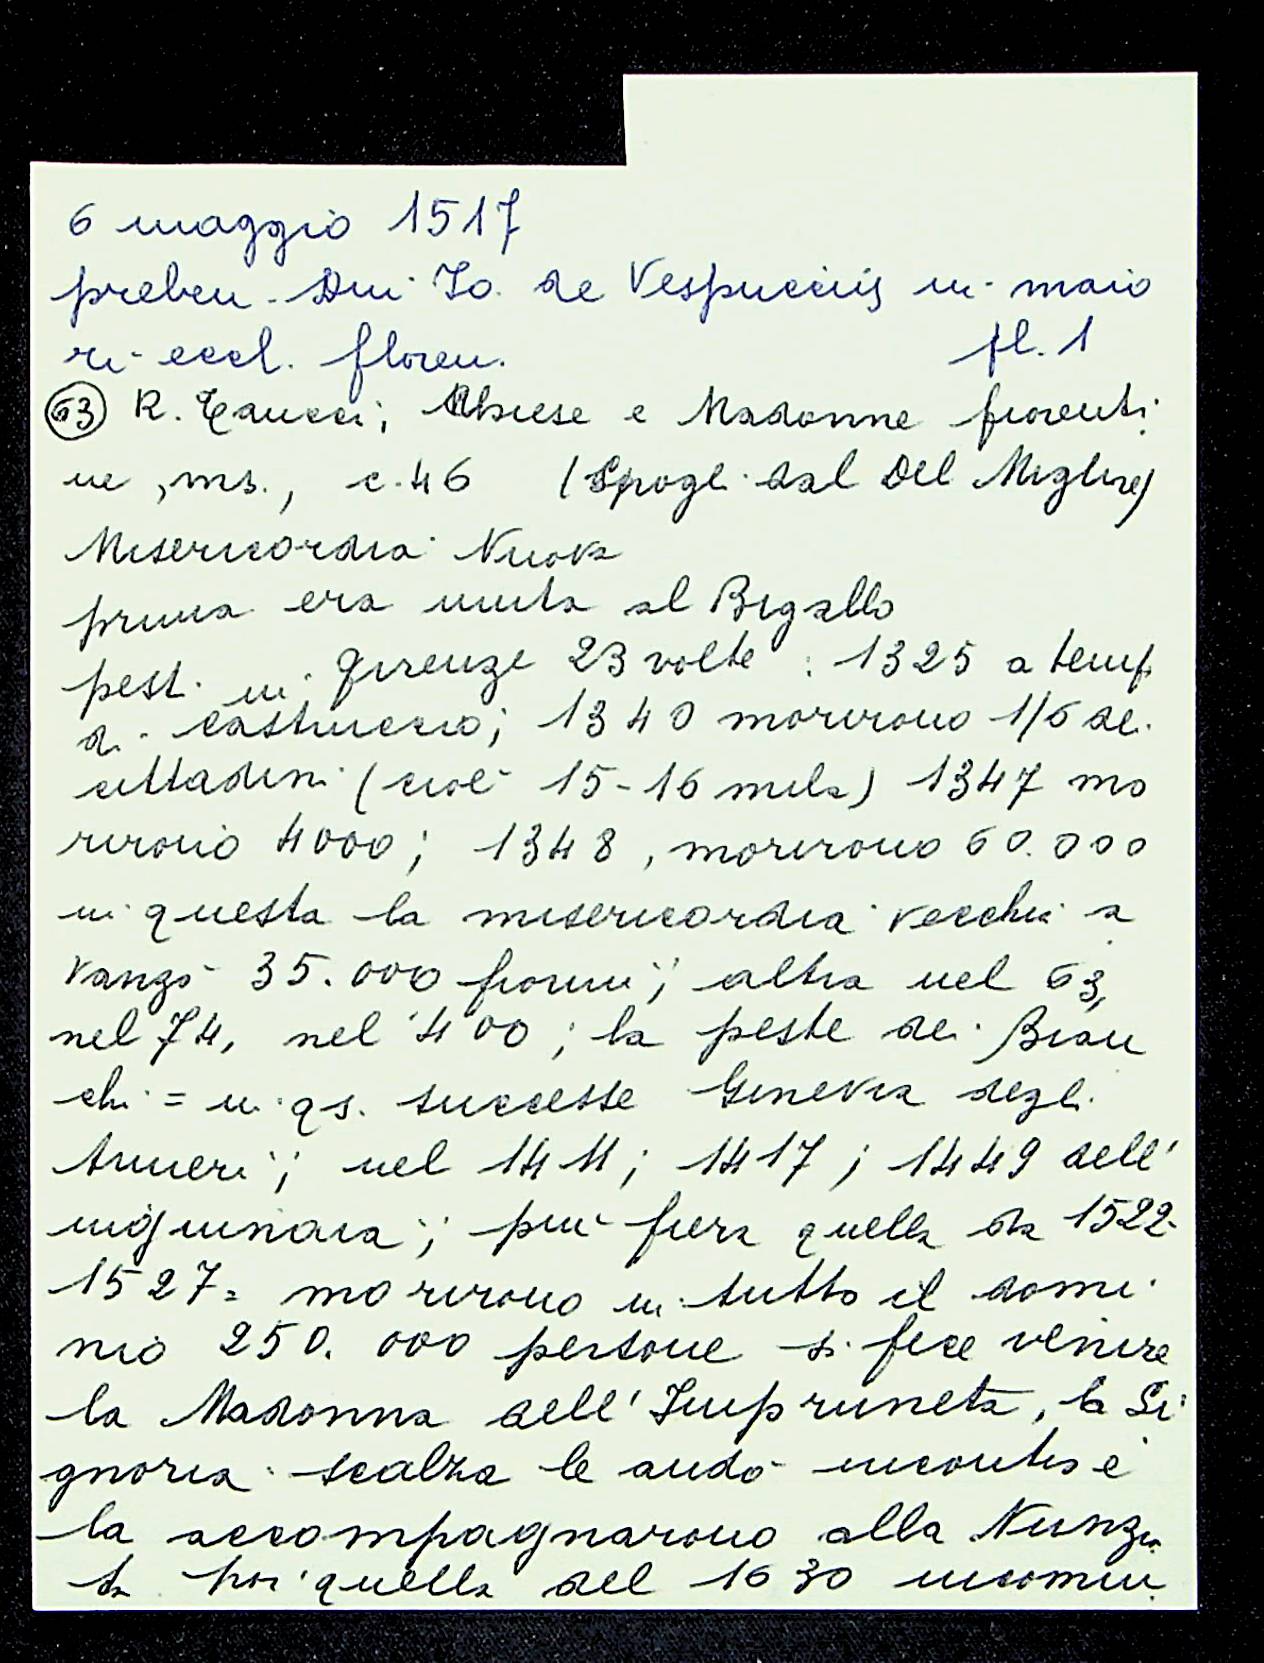 6 maggio 1517
preben. Dni Jo. de Vespucciis in maio
ri eccl. floren. fl. 1
63 R. Taucci, Chiese e Madonne fiorenti
ne, ms., c. 46 (Spogli dal Del Migliore)
Misericordia Nuova
prima era unita al Bigallo
pest. in Firenze 23 volte: 1325 a temp.
di Castruccio; 1340 morirono 1/6 dei
cittadini (cioè 15-16 mila) 1347 mo
rirono 4000; 1348, morirono 60.000
in questa la misericordia vecchia a
vanzò 35.000 fiorini; altra nel 63,
nel 74, nel '400; la peste dei Bian
chi = in qs. successe Ginevra degli
Amieri; nel 1411; 1417; 1449 dell'
inguinaia; più fiera quella da 1522-
1527= morirono in tutto il domi
nio 250.000 persone si fece venire
la Madonna dell'Impruneta, la Si
gnoria scalza le andò incontro e
la accompagnarono alla Nunzia
ta poi quella del 1630 incomin